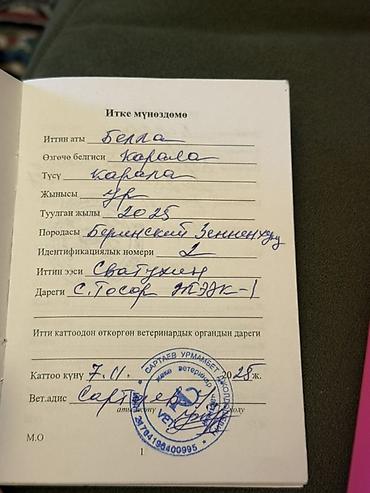 Итке мүнөздөмө
Иттин аты Белла
Өзгөчө белгиси Карала
Түсү карала
Жынысы ур
Туулган жылы 2025
Породасы Бернский Зенненхунд
Идентификациялык номери 2
Иттин ээси Сватухин
Дареги с. Тосор ЖЭЭК-1
Итти каттоодон өткөргөн ветеринардык органдын дареги
Каттоо күнү 7.11. 2025ж.
Вет.адис Сартаев У.
САРТАЕВ УРМАМБЕТ
жеке ветеринар
М.О
1